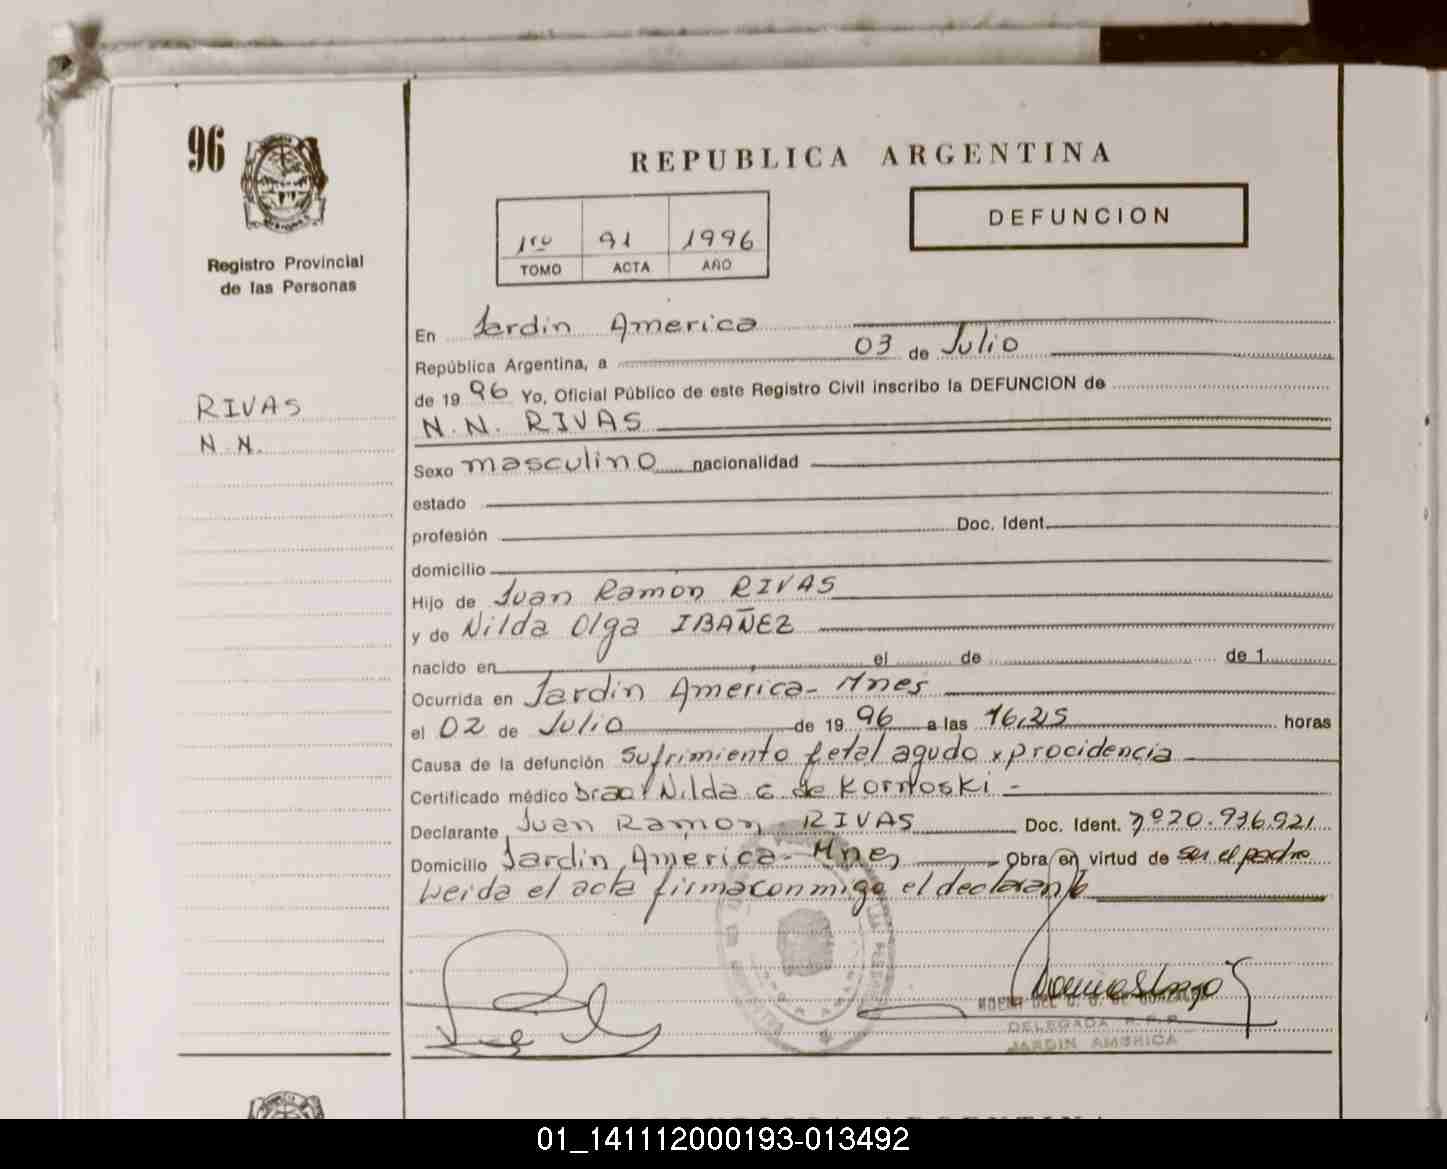 96
REPUBLICA ARGENTINA
DEFUNCION
1ro 91 1996
TOMO ACTA AÑO
Registro Provincial
de las Personas
En Jardin America
República Argentina, a 03 de Julio
de 19 96 Yo, Oficial Público de este Registro Civil inscribo la DEFUNCION de
RIVAS
N.N.
N.N. RIVAS
Sexo masculino nacionalidad
estado
profesión Doc. Ident.
domicilio
Hijo de Juan Ramon RIVAS
y de Nilda Olga IBAÑEZ
nacido en el de de 1
Ocurrida en Jardin America - Mnes
el 02 de Julio de 19 96 a las 16,25 horas
Causa de la defunción Sufrimiento fetal agudo x procidencia
Certificado médico Nilda de Kornoski -
Declarante Juan Ramon RIVAS Doc. Ident. 20.936.921
Domicilio Jardin America - Mnes Obra en virtud de ser el padre
Leida el acta firma conmigo el declarante
DELEGADA R.P.P.
JARDIN AMERICA
01_141112000193-013492